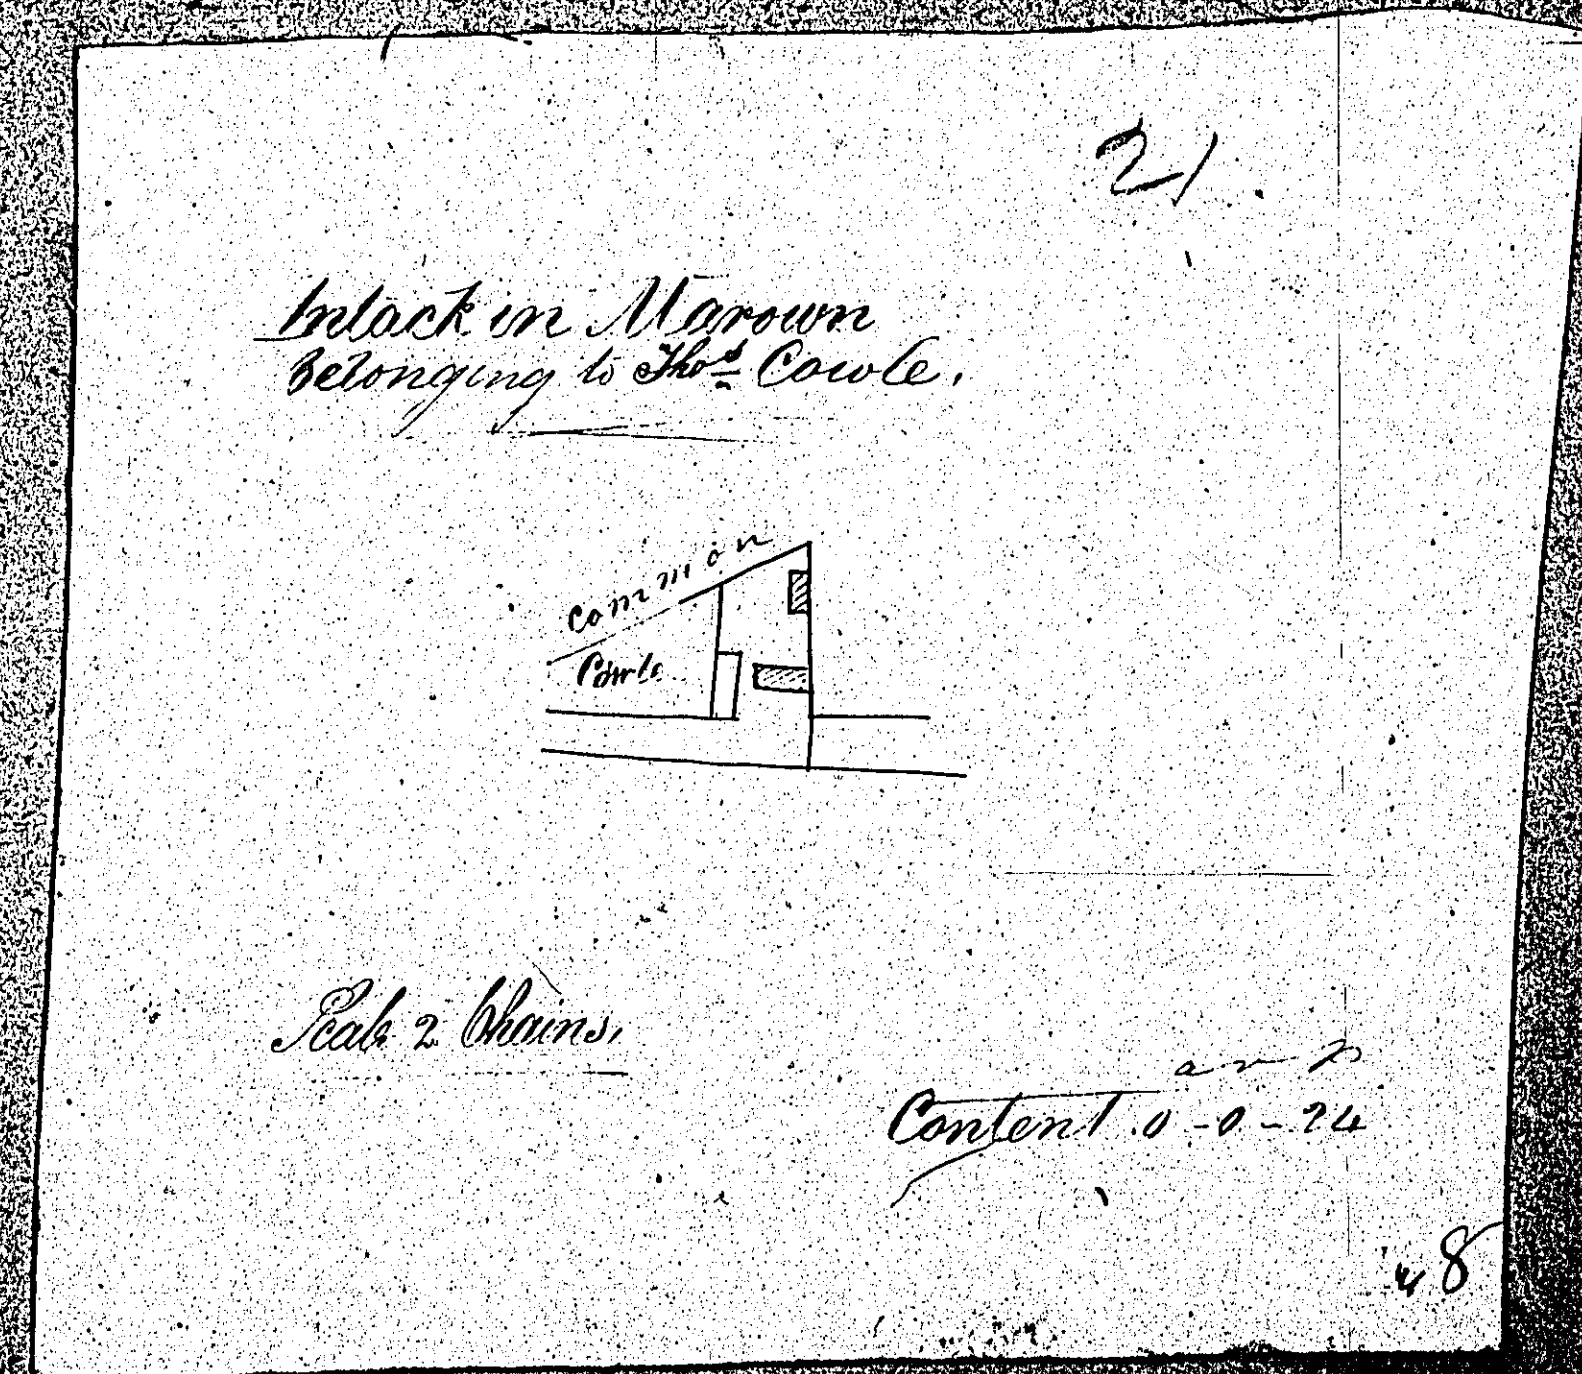 21.
Intack in Marown
Belonging to Thos Cowle.
Common
Cowle
Scale 2 Chains.
a r p
Content 0-0-24
48